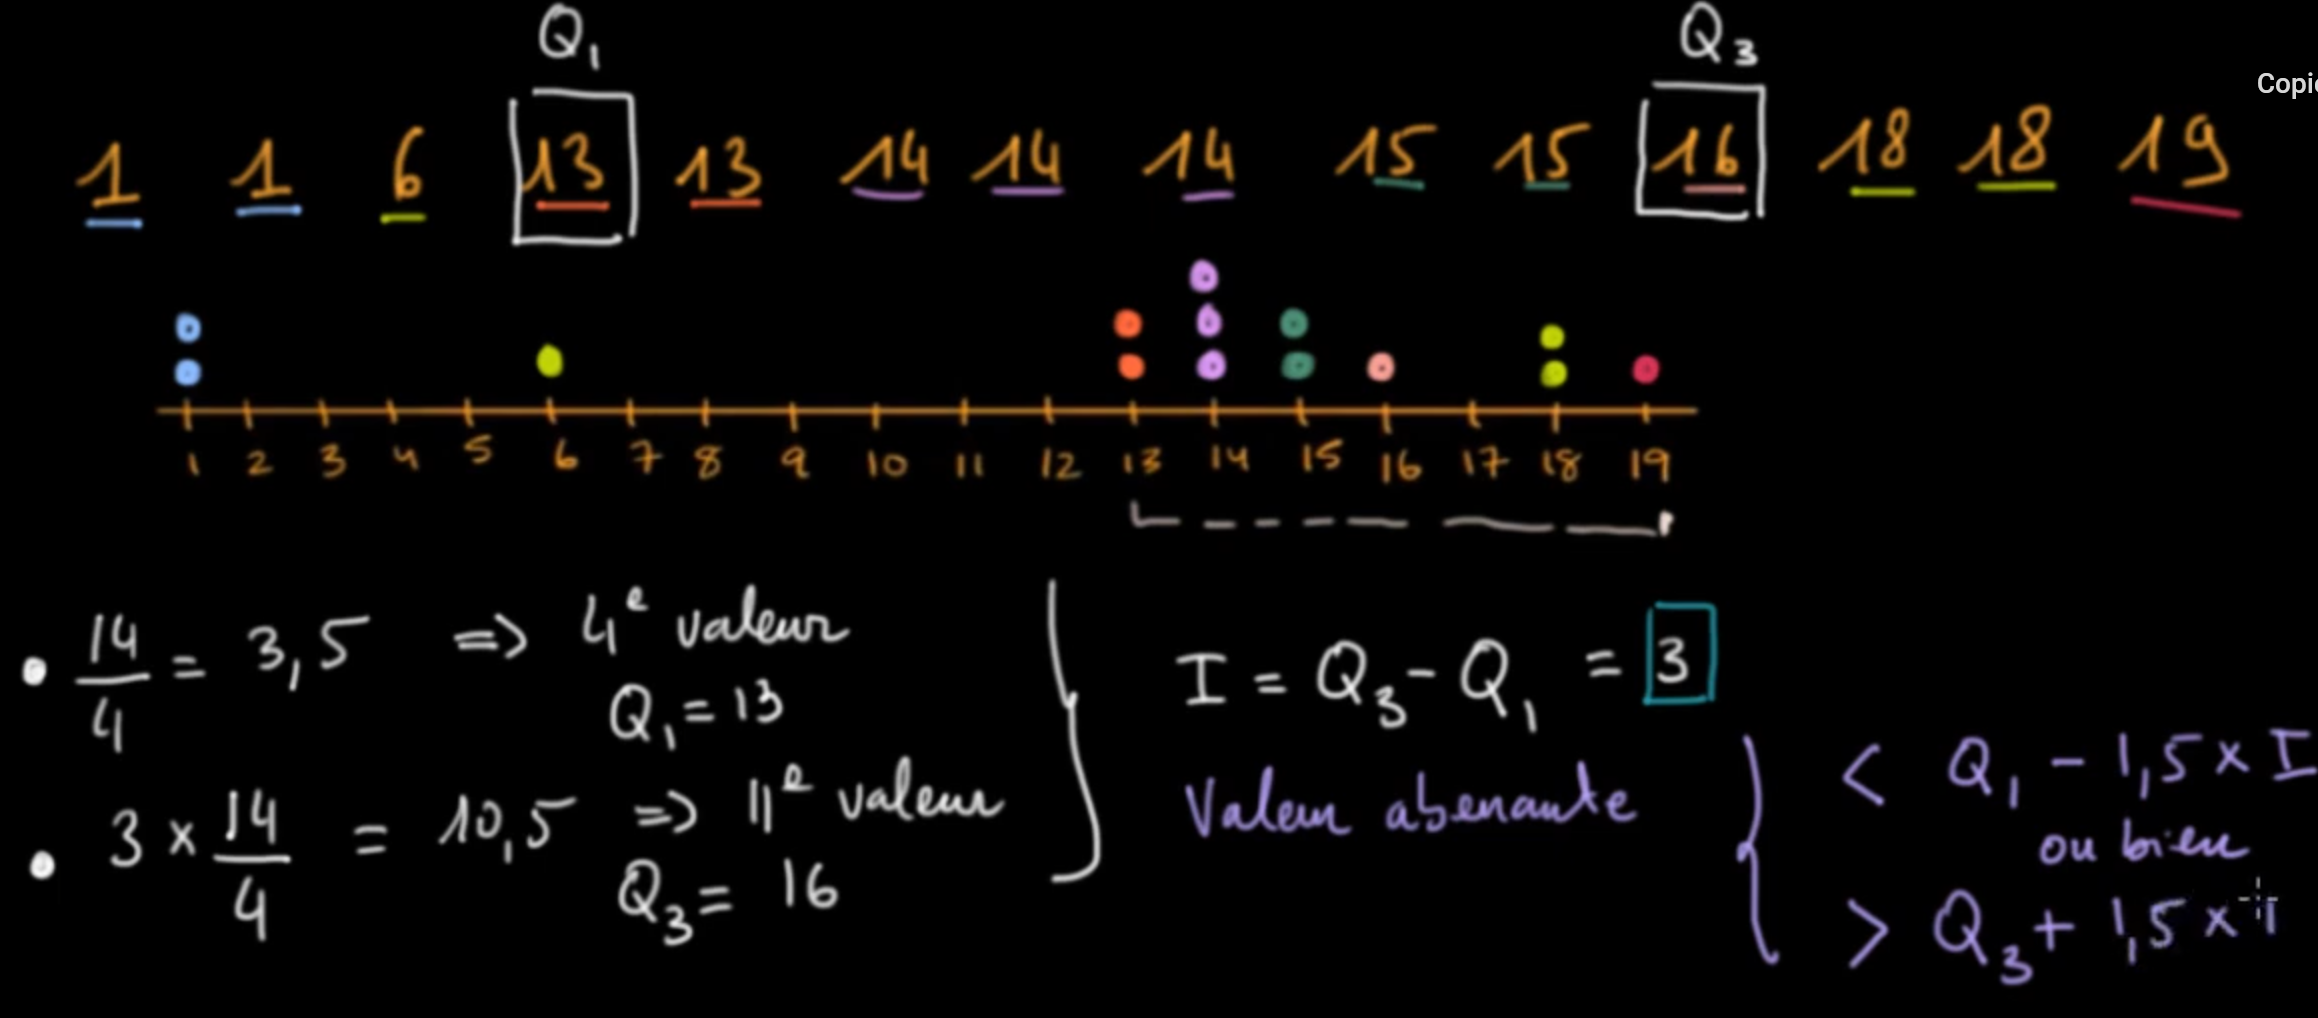 Q₁ Q₃
Copie
1 1 6 13 13 14 14 14 15 15 16 18 18 19
1 2 3 4 5 6 7 8 9 10 11 12 13 14 15 16 17 18 19
• 14/4 = 3,5 => 4e valeur
Q₁ = 13
• 3 × 14/4 = 10,5 => 11e valeur
Q₃ = 16
I = Q₃ - Q₁ = 3
Valeur aberrante
< Q₁ - 1,5 × I
ou bien
> Q₃ + 1,5 × I